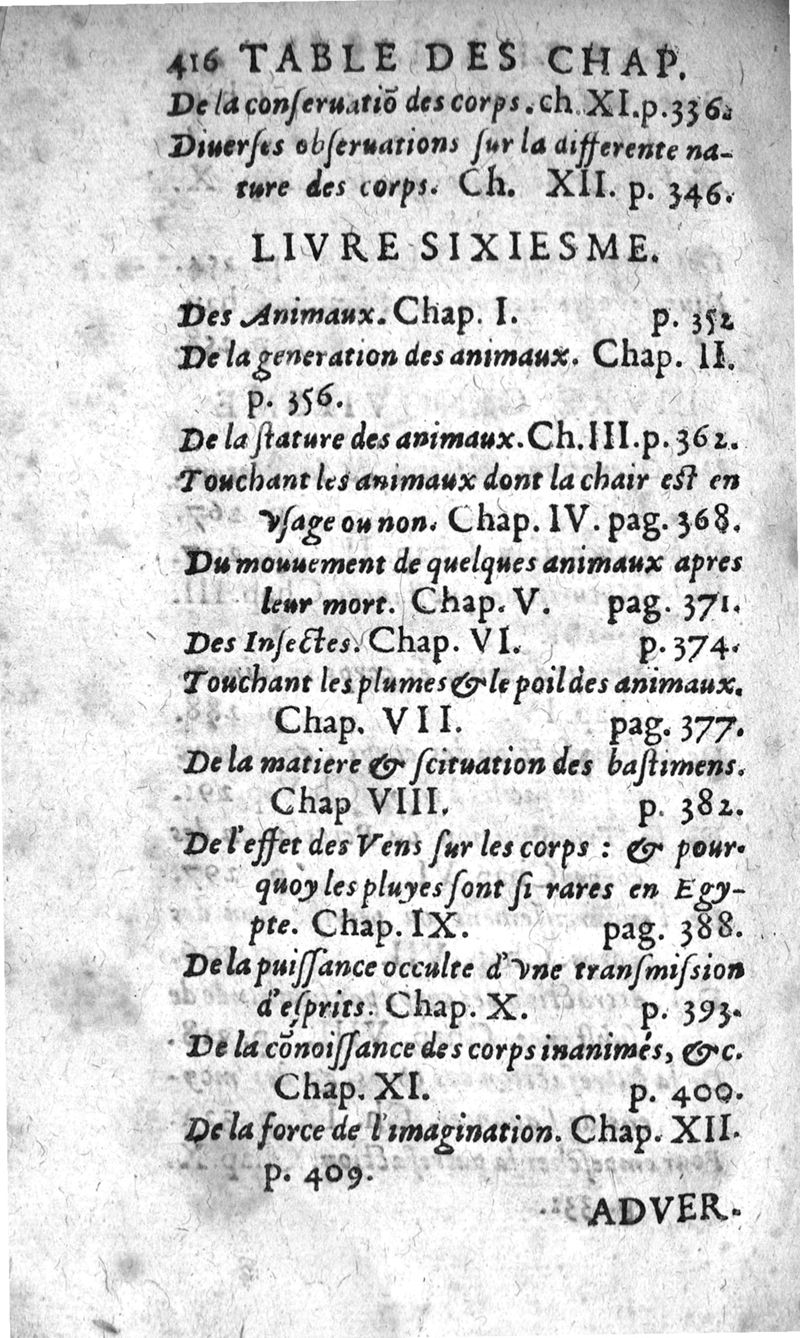 416 TABLE DES CHAP.
De la conſeruatiõ des corps. ch. XI. p. 336.
Diuerſes obſeruations ſur la differente na-
ture des corps. Ch. XII. p. 346.
LIVRE SIXIESME.
Des Animaux. Chap. I. p. 352
De la generation des animaux. Chap. II.
p. 356.
De la ſtature des animaux. Ch. III. p. 362.
Touchant les animaux dont la chair eſt en
vſage ou non. Chap. IV. pag. 368.
Du mouuement de quelques animaux apres
leur mort. Chap. V. pag. 371.
Des Inſectes. Chap. VI. p. 374.
Touchant les plumes & le poil des animaux.
Chap. VII. pag. 377.
De la matiere & ſcituation des baſtimens.
Chap VIII. p. 382.
De l'effet des Vens ſur les corps : & pour-
quoy les pluyes ſont ſi rares en Egy-
pte. Chap. IX. pag. 388.
De la puiſſance occulte d'vne tranſmiſsion
d'eſprits. Chap. X. p. 393.
De la cõnoiſſance des corps inanimés, &c.
Chap. XI. p. 400.
De la force de l'imagination. Chap. XII.
p. 409.
ADVER-